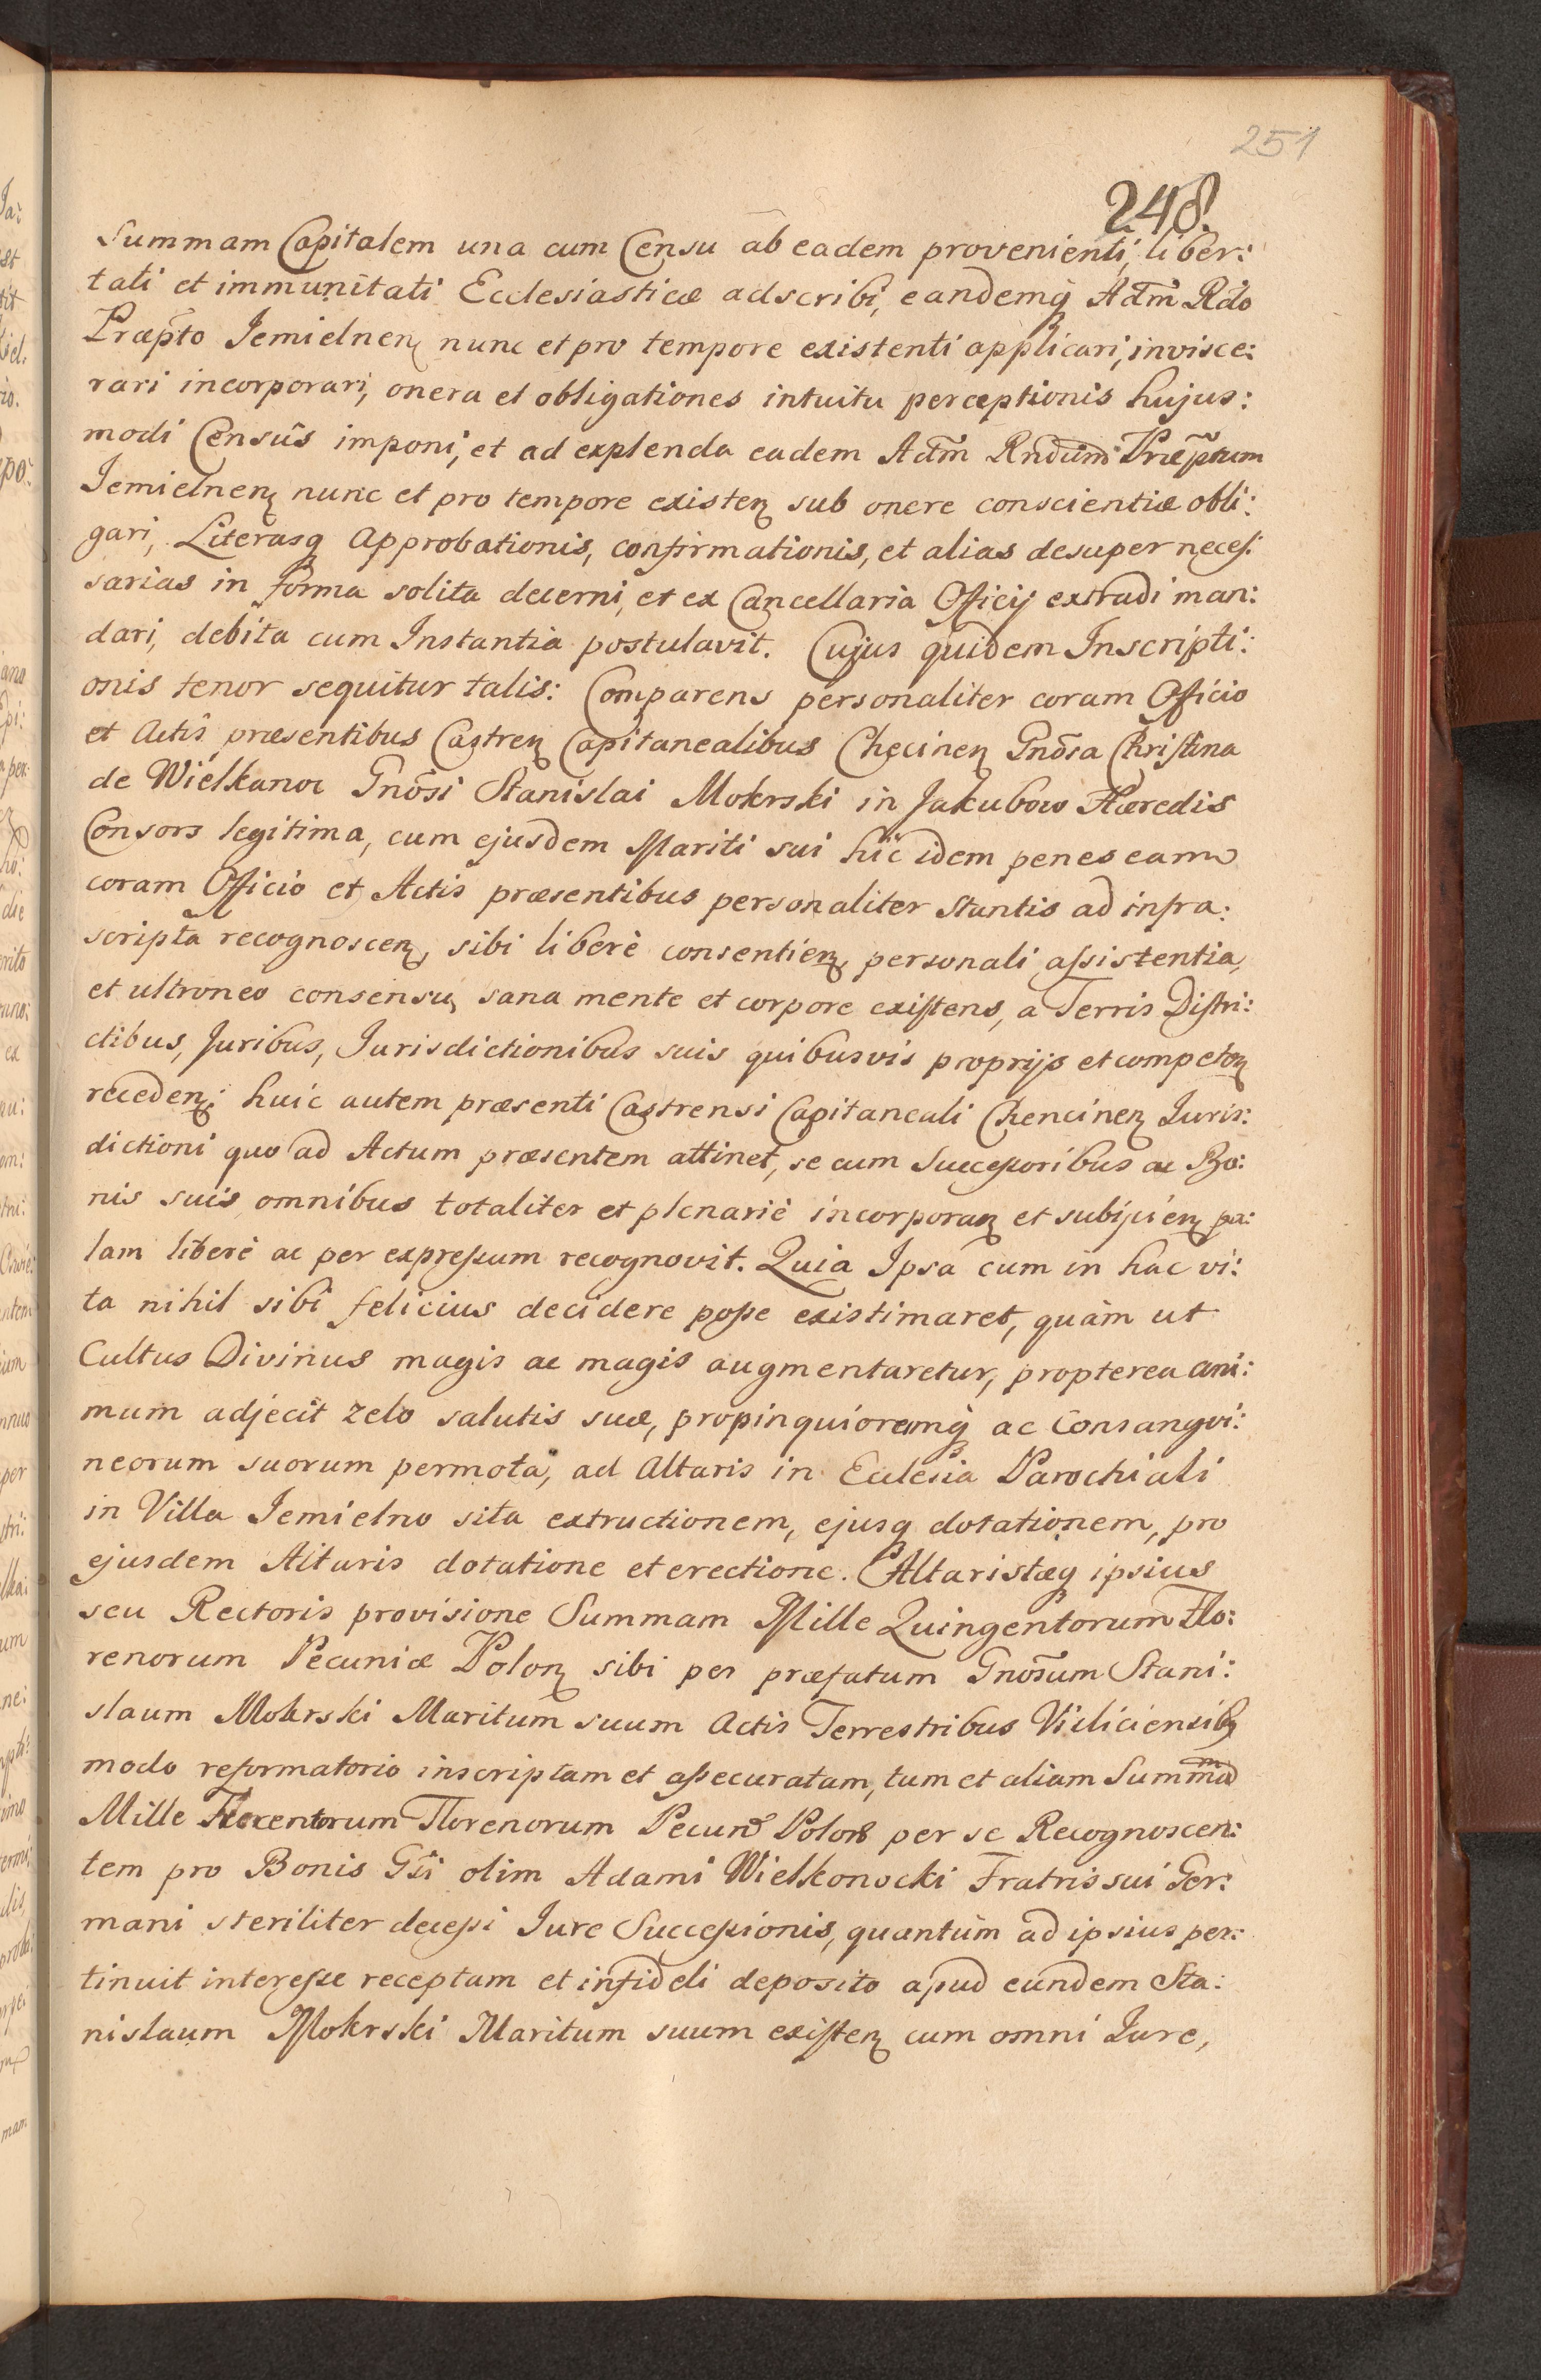 251
248.
Summam Capitalem una cum Censu ab eadem provenienti, liber:
tati et immunitati Ecclesiasticæ adscribi, eandemq́ Adm̃ Rdo
Præp̃to Jemielnen̨ nunc et pro tempore existenti applicari, invisce:
rari incorporari, onera et obligationes intuitu perceptionis hujus:
modi Censûs imponi, et ad explenda eadem Adm̃ Rndum̃ Præp̃tum
Jemielnen̨ nunc et pro tempore existen̨ sub onere conscientiæ obli:
gari, Literasq Approbationis, confirmationis, et alias desuper necess:
sarias in forma solita decerni, et ex Cancellaria Officij extradi man:
dari, debita cum Instantia postulavit. Cujus quidem Inscripti:
onis tenor sequitur talis: Comparens personaliter coram Officio
et Actis præsentibus Castren̨ Capitanealibus Chęcinen̨ Gnõsa Christina
de Wielkanoc Gnõsi Stanislai Mokrski in Jakubow Hæredis
Consors legitima, cum ejusdem Mariti sui hic idem penes eam
coram Officio et Actis præsentibus personaliter stantis ad infra:
scripta recognoscen̨, sibi liberè consentien̨, personali assistentia,
et ultroneo consensu, sana mente et corpore existens, a Terris Distri:
ctibus, Juribus, Jurisdictionibus suis quibusvis proprijs et competen̨
receden̨: huic autem præsenti Castrensi Capitaneali Chencinen̨ Juris:
dictioni quo ad Actum præsentem attinet, se cum Successoribus ac Bo:
nis suis omnibus totaliter et plenariè incorporan̨ et subijcien̨ pa:
lam liberè ac per expressum recognovit. Quia Ipsa cum in hac vi:
ta nihil sibi felicius decidere posse existimaret, quàm ut
Cultus Divinus magis ac magis augmentaretur, propterea ani:
mum adjecit zelo salutis suæ, propinquioremq́ ac Consangvi:
neorum suorum permota, ad Altaris in Ecclesia Parochiali
in Villa Jemielno sita extructionem, ejusq dotationem, pro
ejusdem Altaris dotatione et erectione. Altaristæq ipsius
seu Rectoris provisione Summam Mille Quingentorum Flo:
renorum Pecuniæ Polon̨ sibi per præfatum Gnõsum Stani:
slaum Mokrski Maritum suum Actis Terrestribus Visliciensibq
modo reformatorio inscriptam et assecuratam, tum et aliam Summam
Mille Florenorum Pecun̄ Polon̄ per se Recognoscen:
tem pro Bonis Gsi olim Adami Wielkonocki Fratris sui Ger:
mani steriliter decessi Jure Successionis, quantum ad ipsius per:
tinuit interesse receptam et in fideli deposito apud eundem Sta:
nislaum Mokrski Maritum suum existen̨ cum omni Jure,